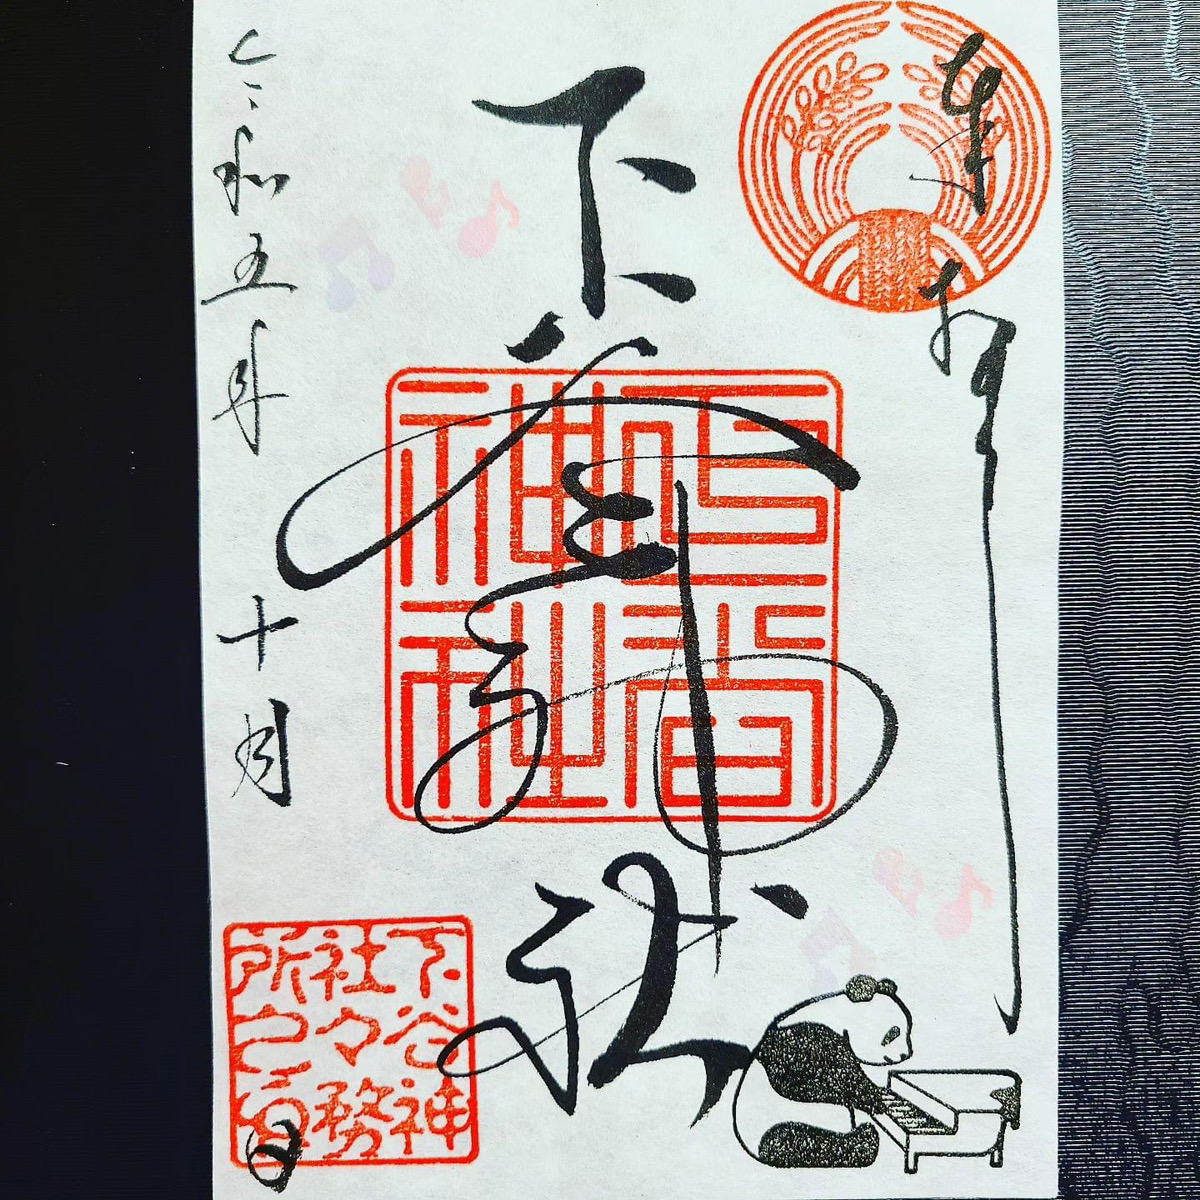 奉拝
下谷神社
下谷
神社
令和五年十月 日
下谷神
社々務
所之印